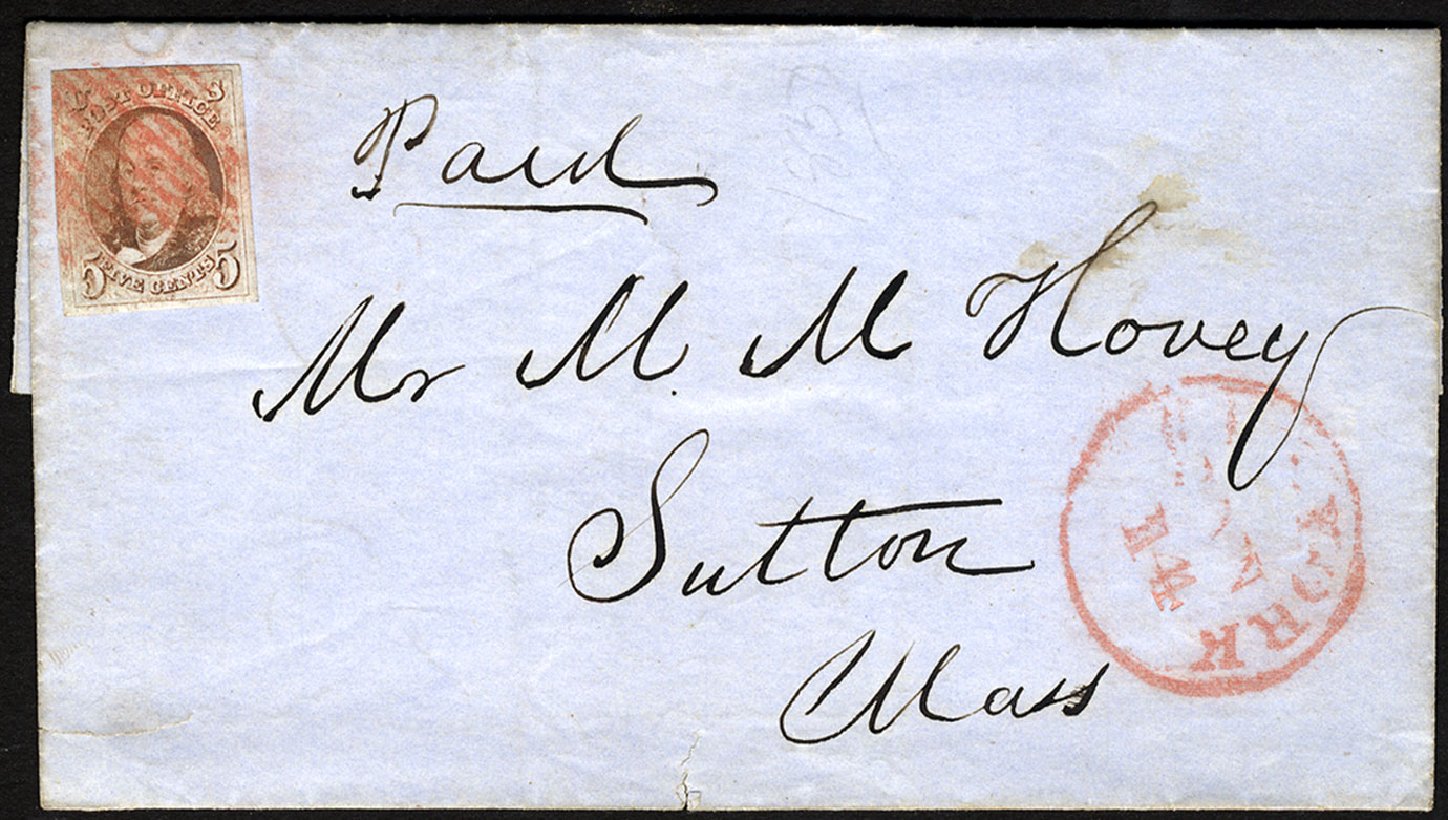 U S
POST OFFICE
5 FIVE CENTS 5
Paid
Mr M. M Hovey
Sutton
Mass
YORK
14